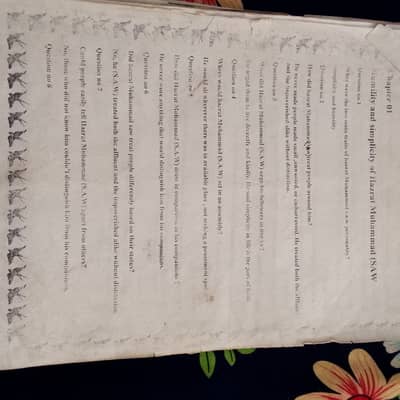 Chapter 01
Humility and simplicity of Hazrat Muhammad (SAW
Question no 1
What were the two main traits of hazrat Muhammad s.a.w personality?
simplicity and humility
Question no 2
How did hazrat Muhammad treat people around him?
He never made people small, unwanted, or embarrassed. He treated both the affluent
and the impoverished alike without distinction.
Question no 3
What did Hazrat Muhammad (S.A.W) urge his followers to live in?
He urged them to live decently and kindly. He said simplicity in life is the part of
Question no 4
Where would hazrat Muhammad (S.A.W) sit in an assembly?
He would sit wherever there was an available place, not seeking a prominent spot
Question no 5
How did Hazrat Muhammad (S.A.W) dress in comparison to his companions?
He never wore anything that would distinguish him from his companions.
Question no 6
Did hazrat Muhammad saw treat people differently based on their status?
No, he (S.A.W) treated both the affluent and the impoverished alike without distinction.
Question no 7
Could people easily tell Hazrat Muhammad (S.A.W) apart from others?
No, those who did not know him couldn't distinguish him from his companions.
Question no 8